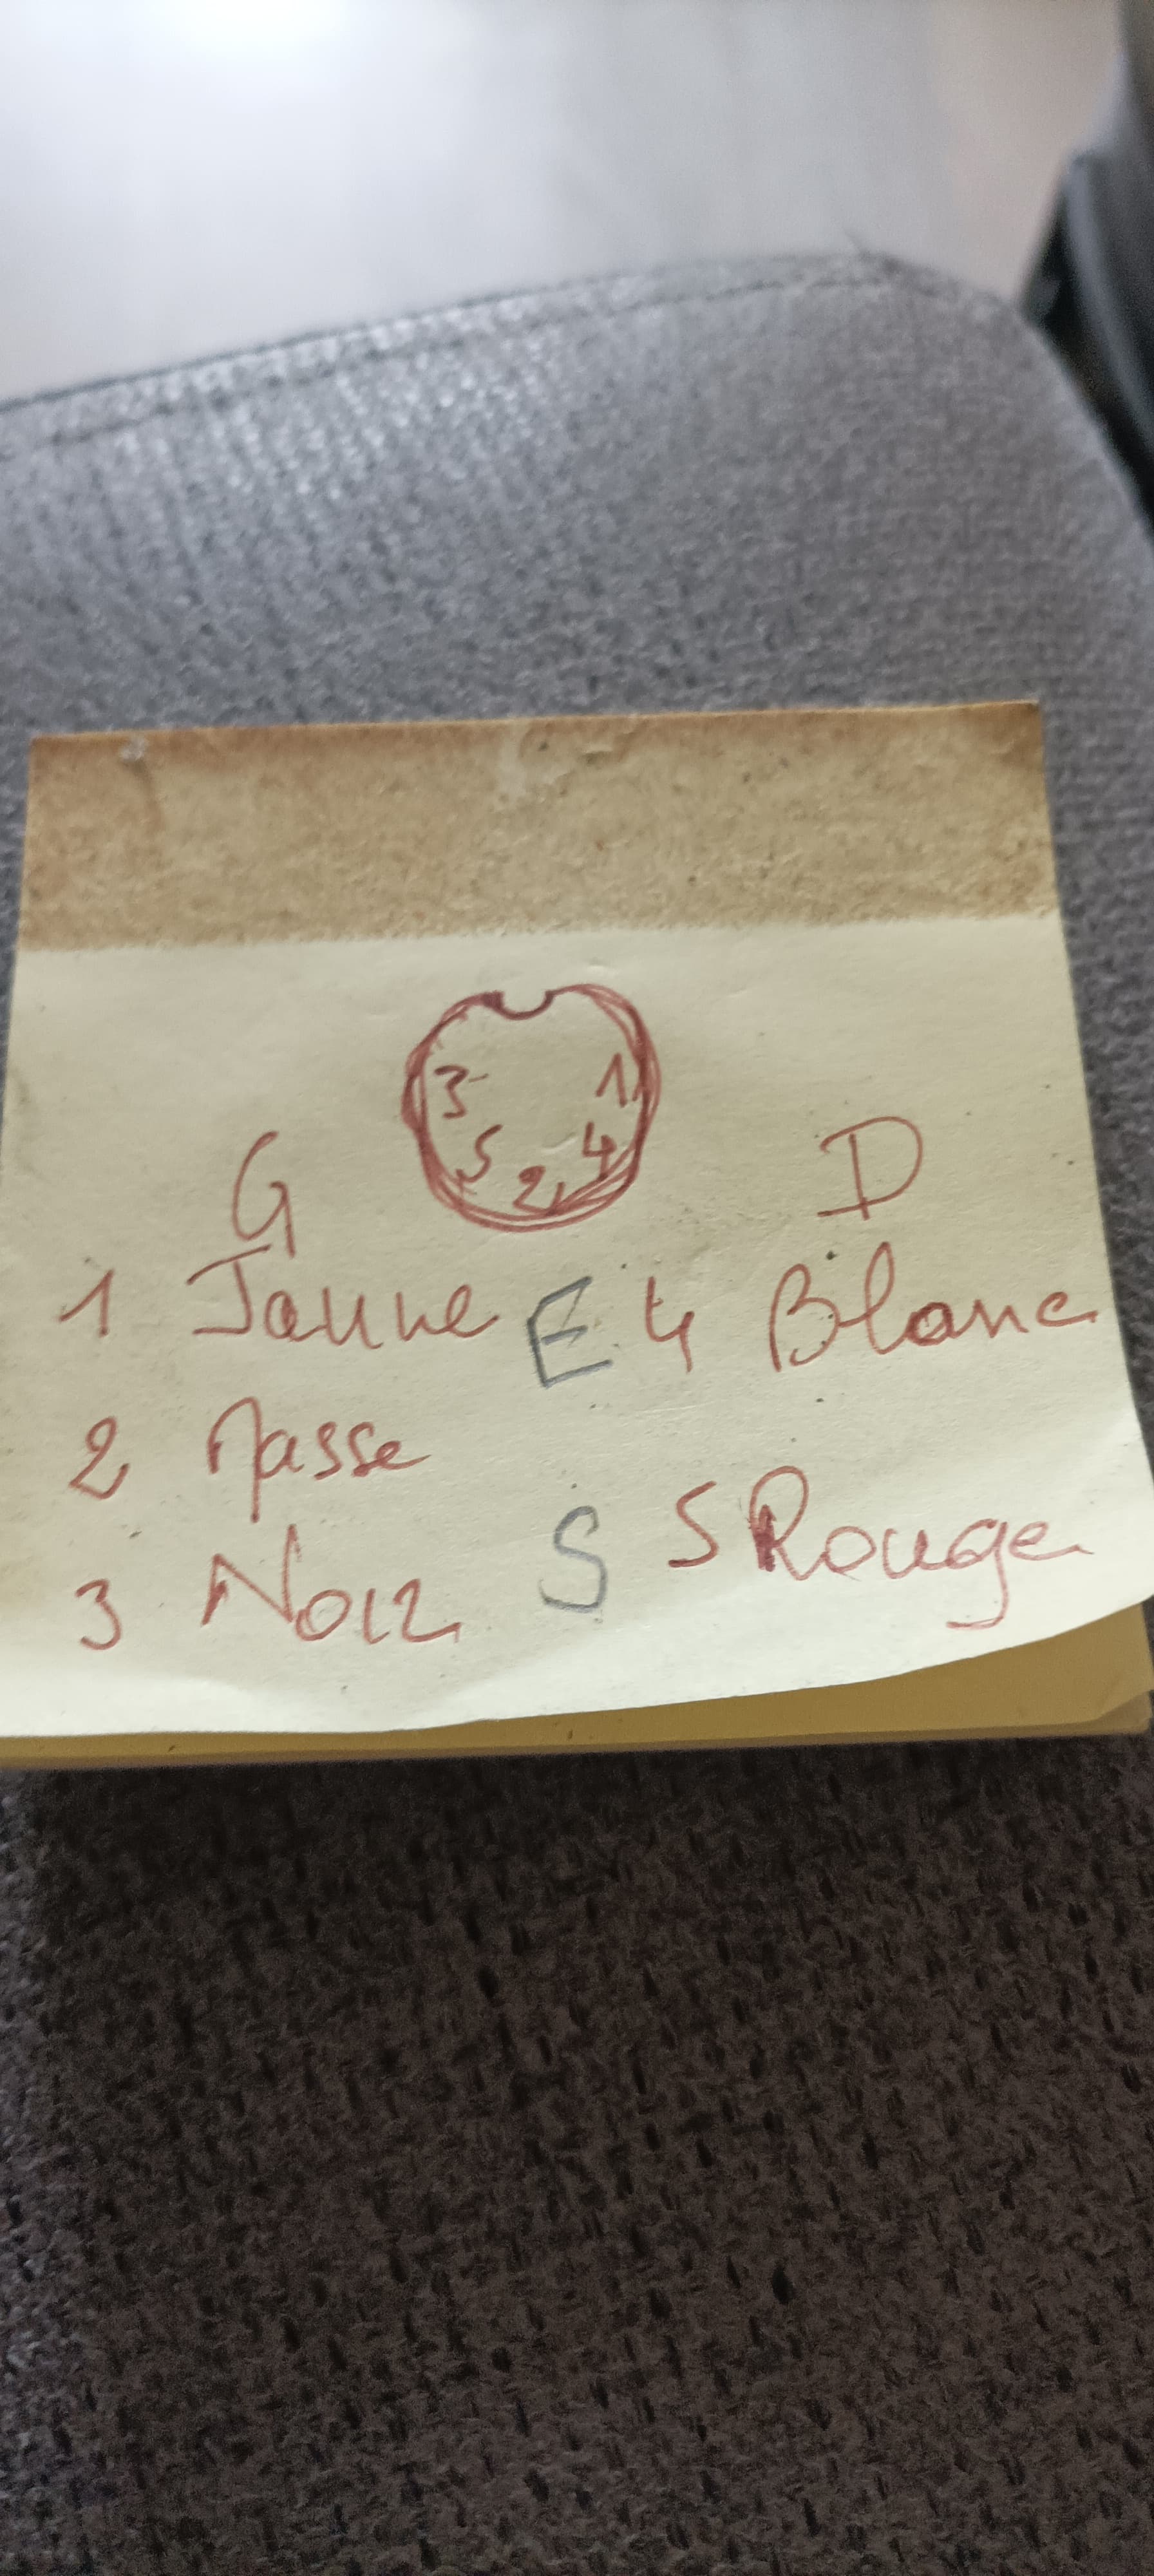 3 1
5 2 4
G D
1 Jaune E 4 Blanc
2 Masse
3 Noir S 5 Rouge